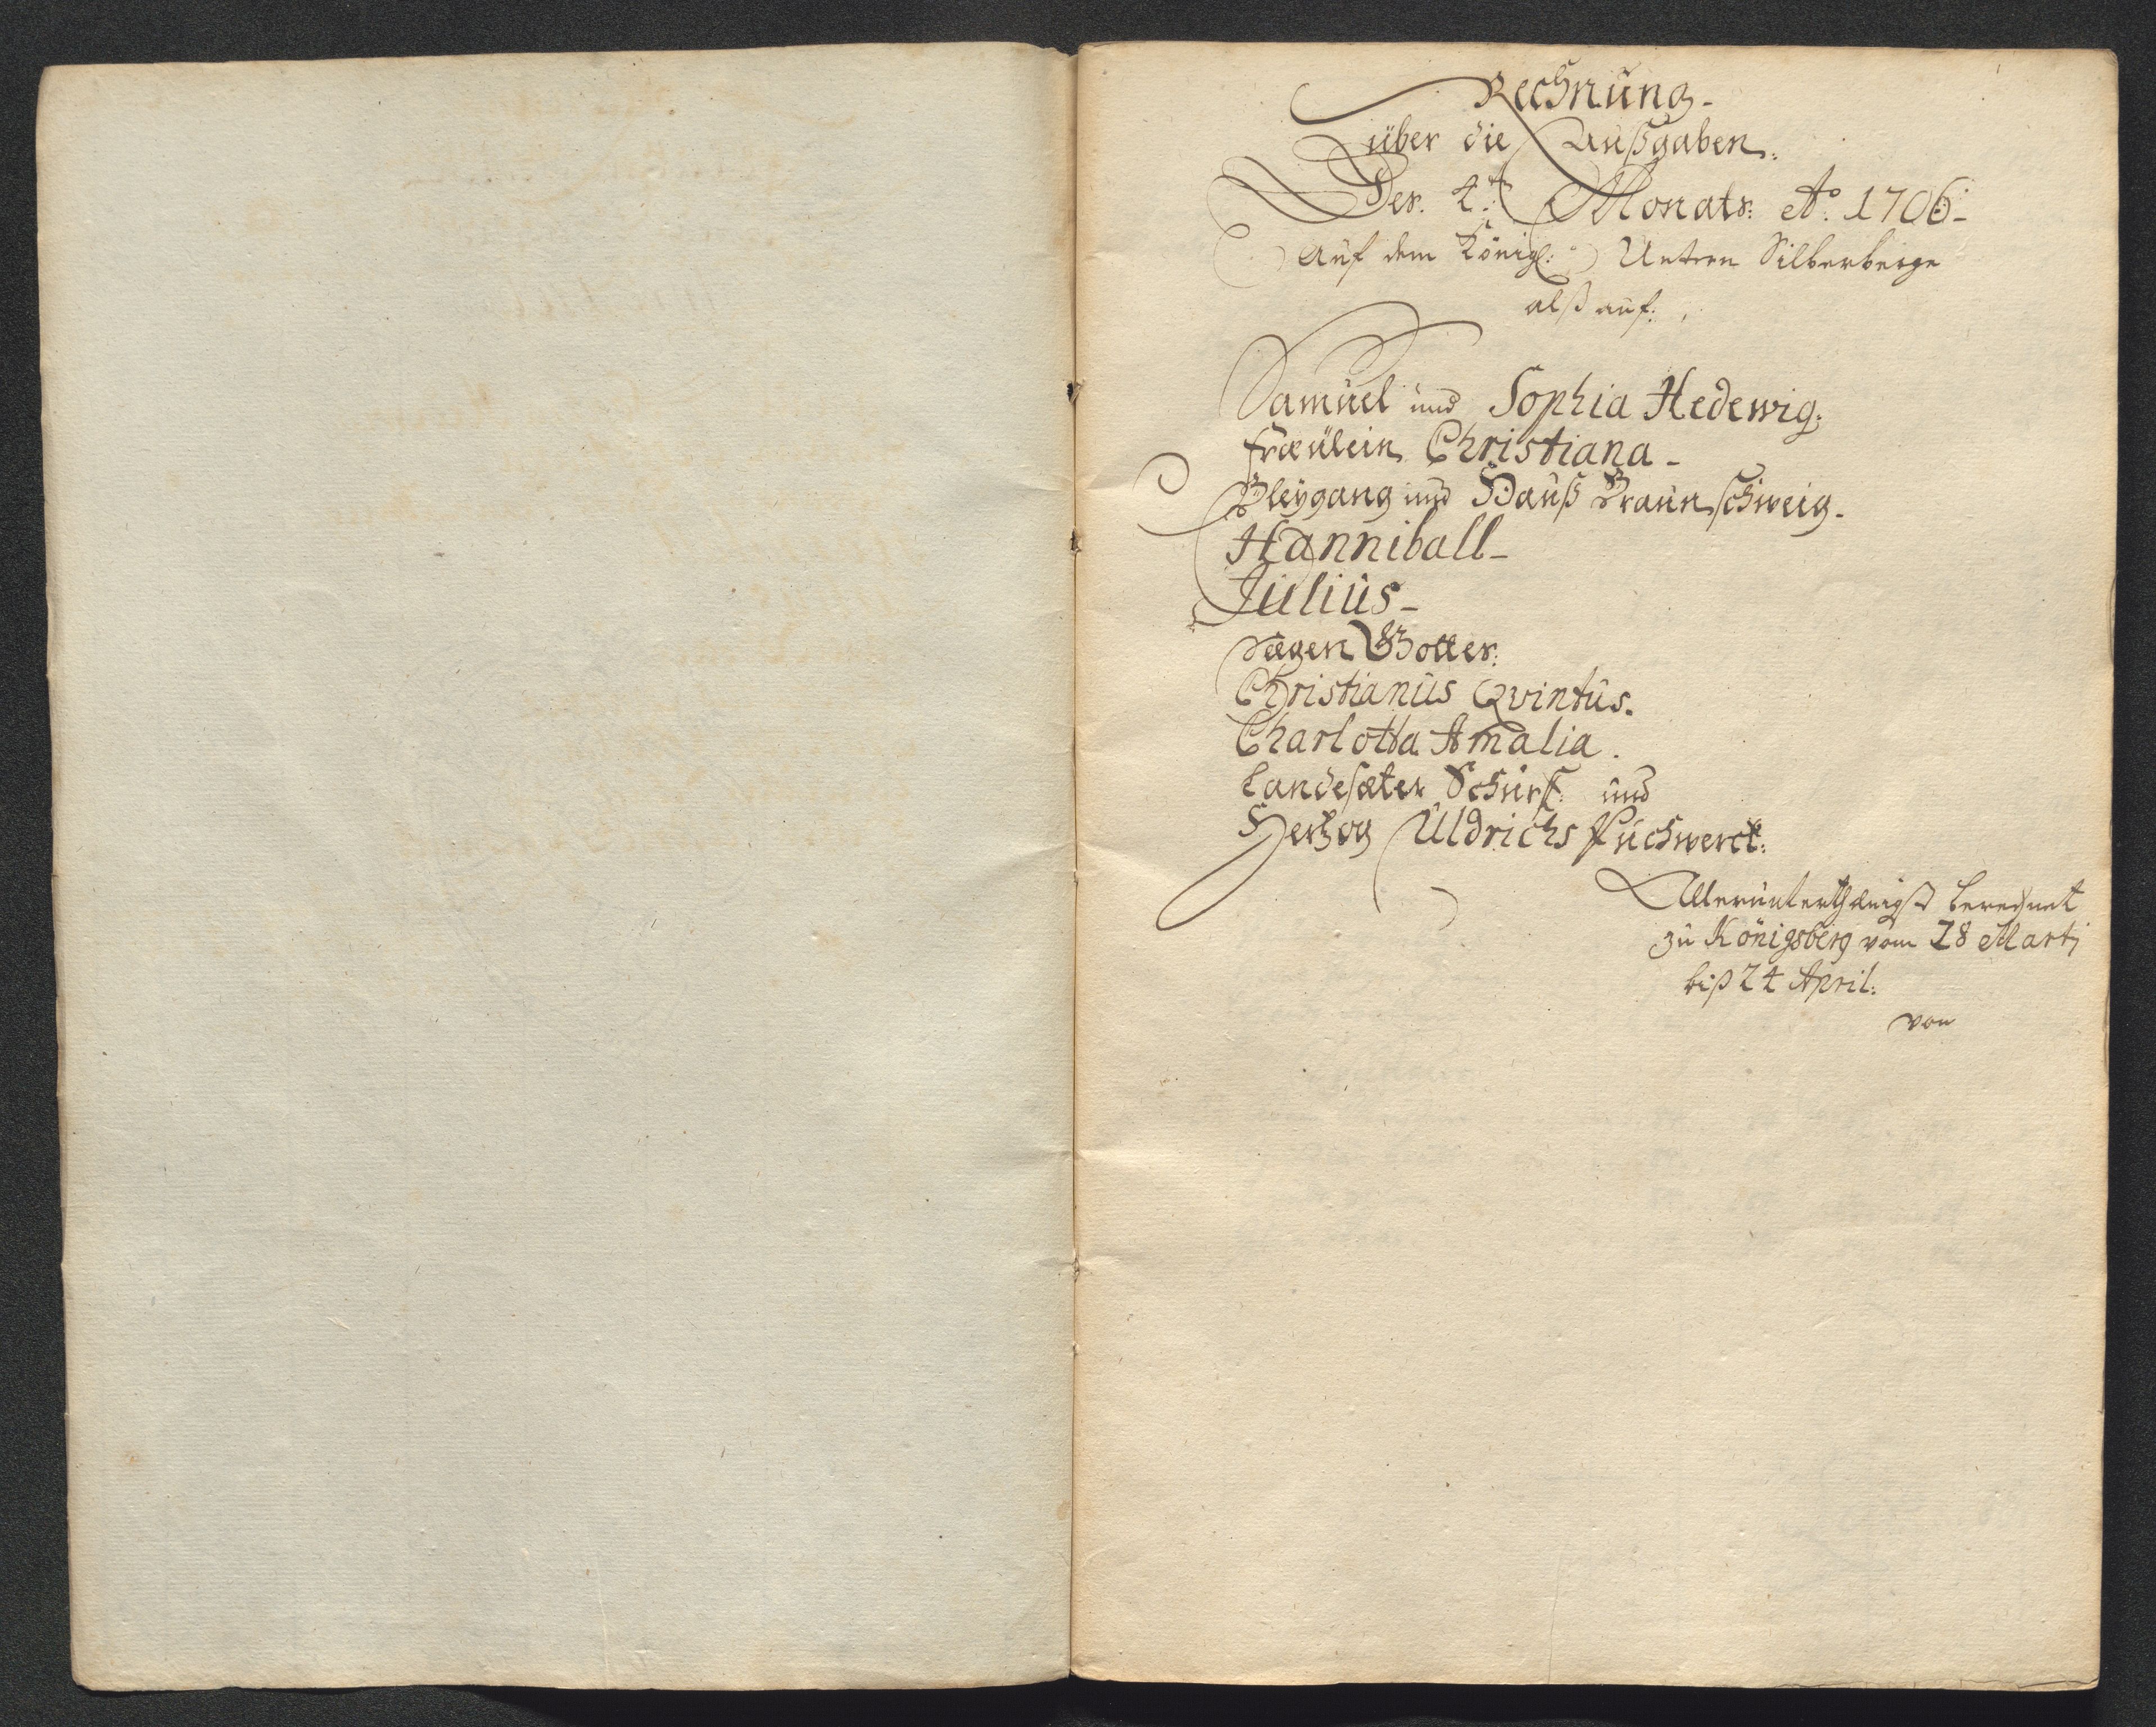 Rechnung
über die Außgaben.
Des 4t. Monats: Ao. 1706
Auf dem Königl: Untern Silberberge
alß auf:
Samuel und Sophia Hedewig.
Fræülein Christiana
Bleÿgang und Hauß Braunschweig
Hanniball
Julius
Segen Gottes.
Christianus Qvintus.
Charlotta Amalia.
Schürf: und
Hertzog Uldrichs Puchwerck.
Allerunterthänigst berechnet
zu Königsberg vom 28 Martj
biß 24 April:
von